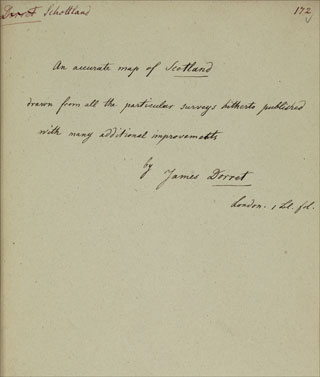 Dorret Schottland
172
An accurate map of Scotland
drawn from all the particular surveys hitherto published
with many additional improvements
by
James Dorret
London. 1 Bl. fol.